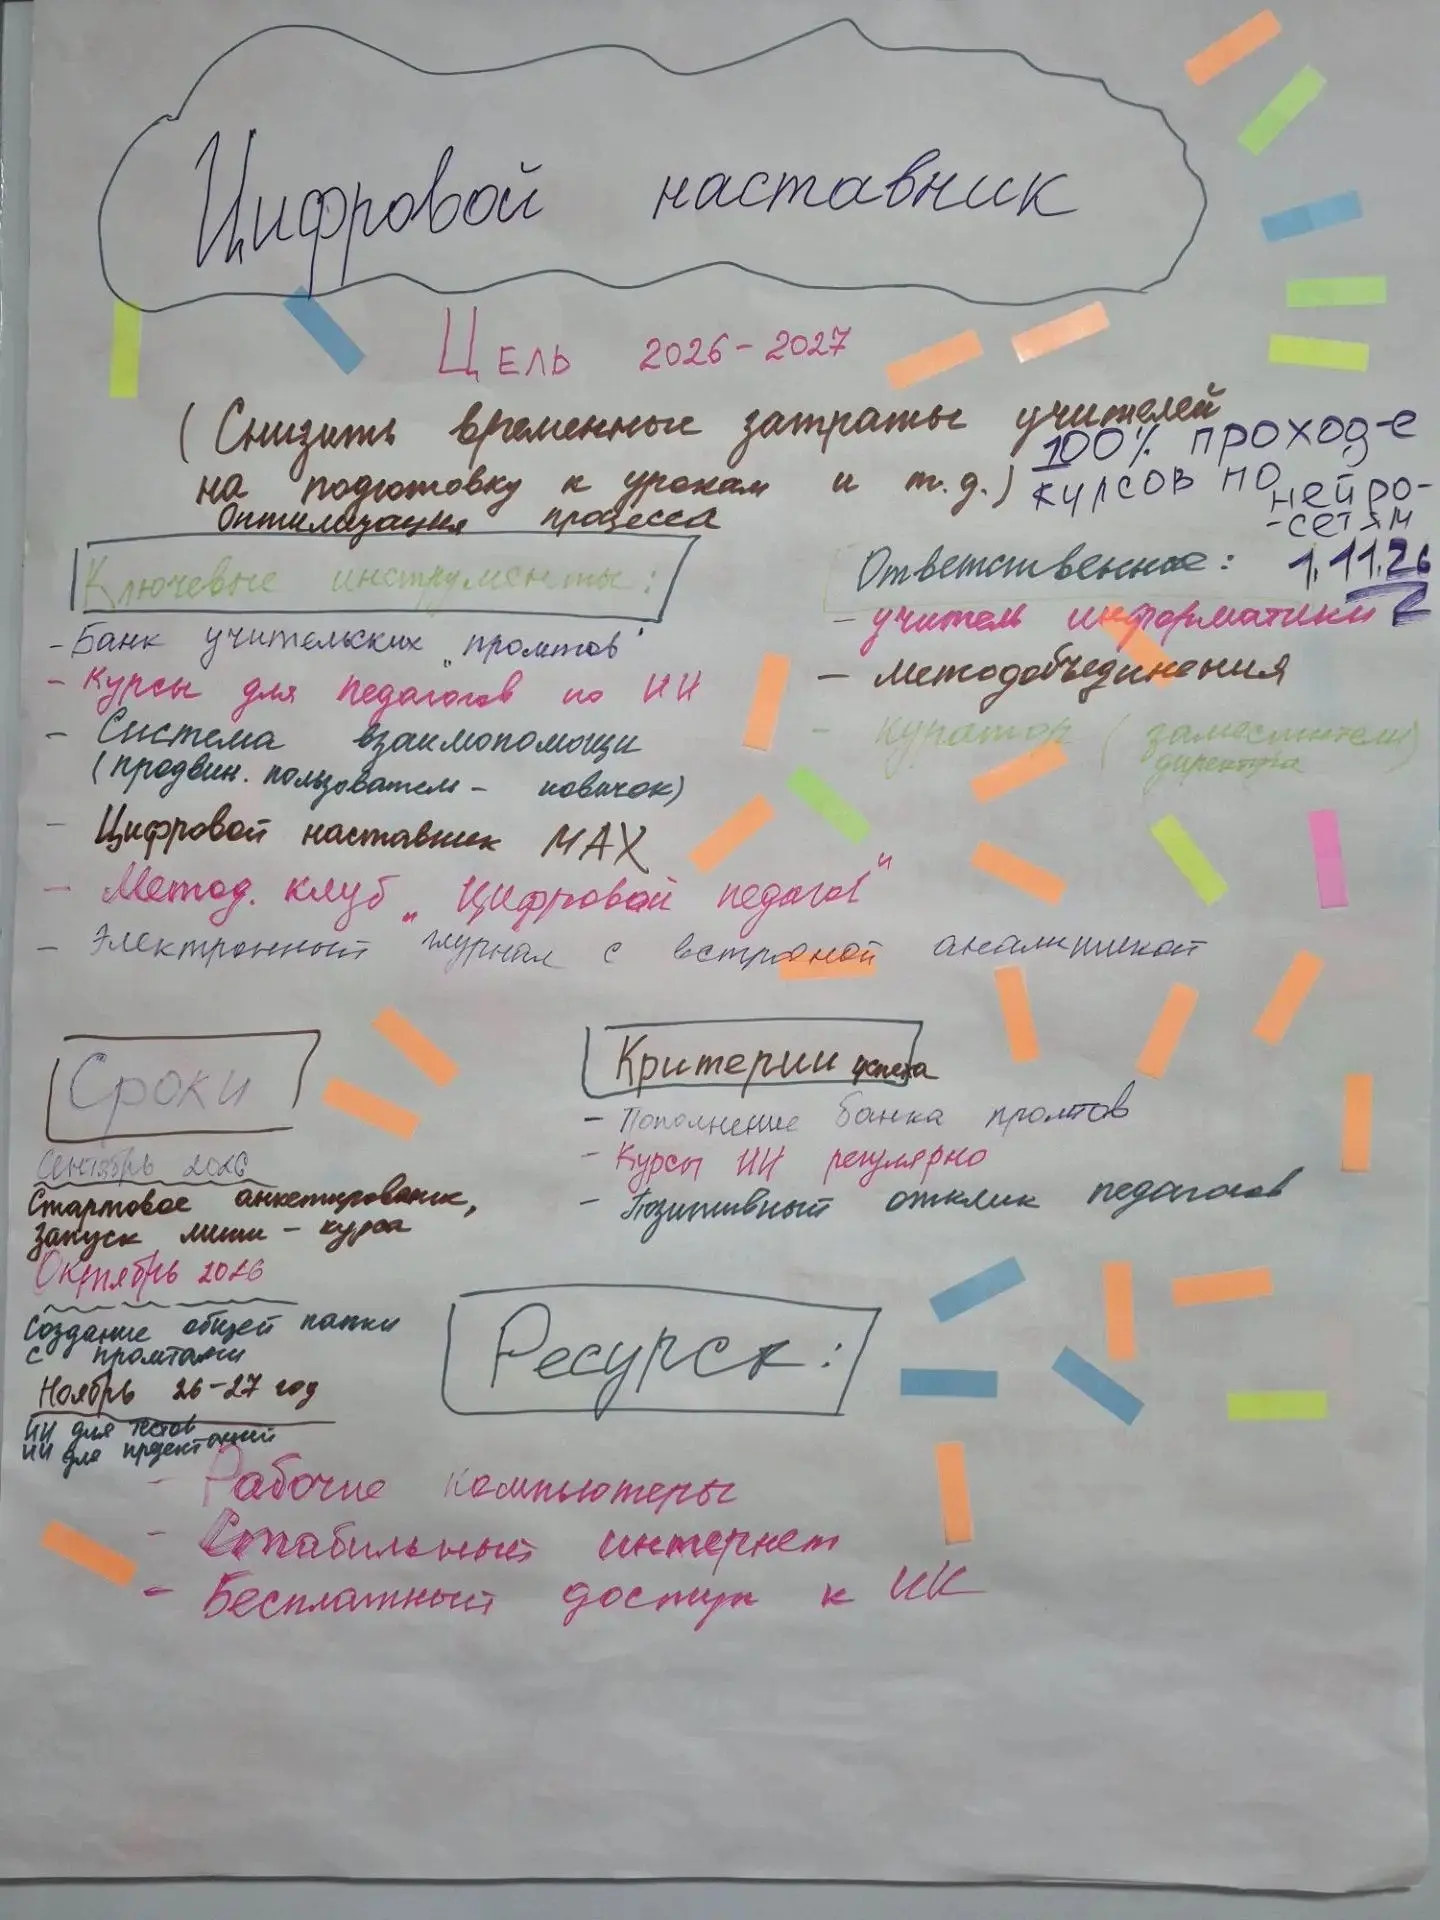 Цифровой наставник
Цель 2026-2027
(Снизить временные затраты учителей
на подготовку к урокам и т.д.)
оптимизация процесса
100% проход-е
курсов по
нейро-
-сетям
1.11.26
Ключевые инструменты:
- Банк учительских "промтов"
- Курсы для педагогов по ИИ
- Система взаимопомощи
(продвин. пользователь - новичок)
- Цифровой наставник MAX
- Метод. клуб "Цифровой педагог"
- Электронный журнал с встроеной аналитикой
Ответственные:
- учитель информатики
- методобъединения
- куратор (заместитель)
директора
Сроки
Сентябрь 2026
Стартовое анкетирование,
запуск мини-курса
Октябрь 2026
Создание общей папки
с промтами
Ноябрь 26-27 год
ИИ для тестов
ИИ для презентаций
Критерии успеха
- Пополнение банка промтов
- Курсы ИИ регулярно
- Позитивный отклик педагогов
Ресурск:
- Рабочие компьютеры
- Стабильный интернет
- Бесплатный доступ к ИИ